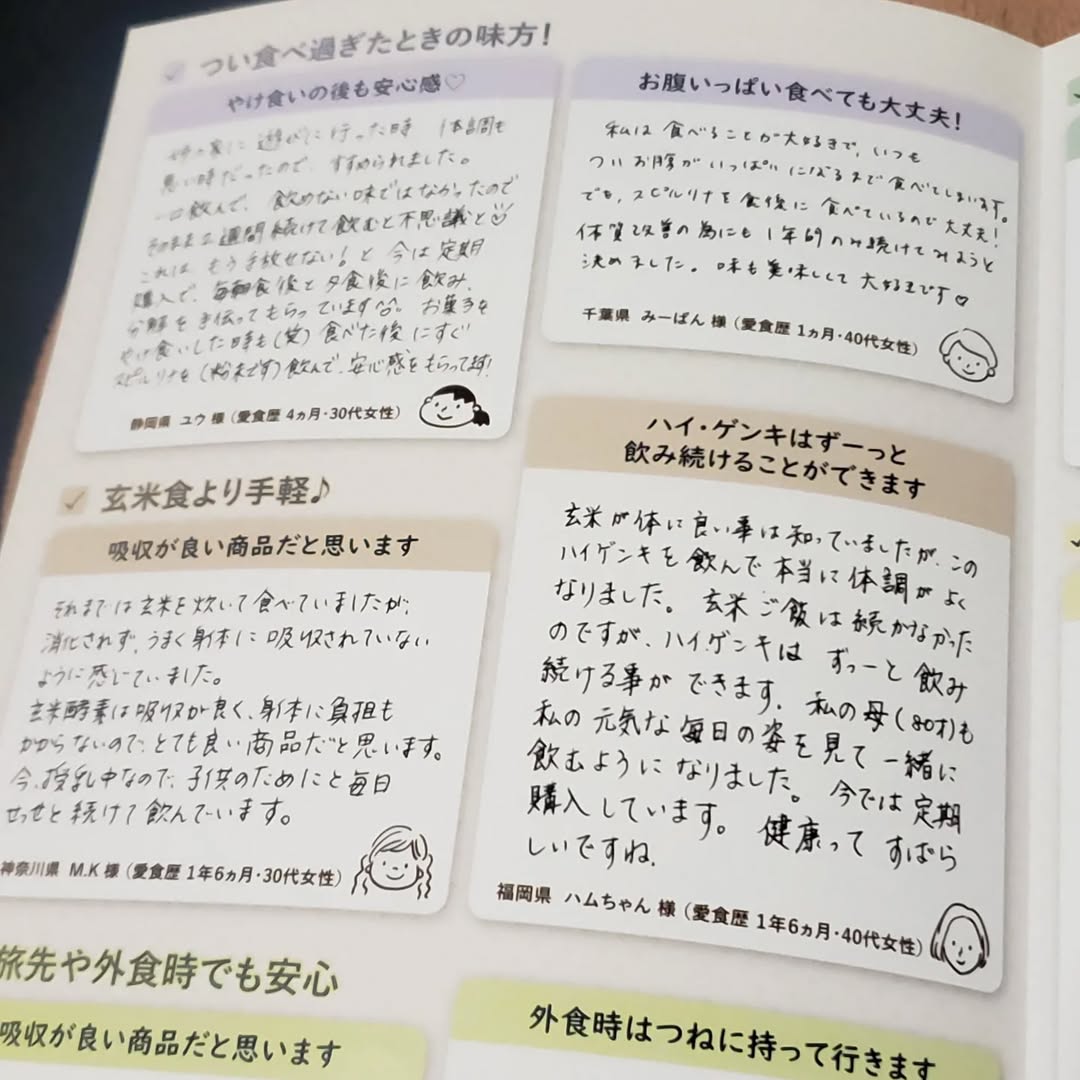 つい食べ過ぎたときの味方！
やけ食いの後も安心感♡
姉の家に遊びに行った時 体調も
悪い時だったので、すすめられました。
一口飲んで、飲めない味ではなかったので
そのまま2週間続けて飲むと不思議と
これは もう手放せない！と 今は定期
購入で、毎朝食後と夕食後に飲み、
分解を手伝ってもらっています^^。お菓子を
やけ食いした時も(笑)食べた後にすぐ
スピルリナを(粉末です)飲んで、安心感をもらってます！
静岡県 ユウ 様（愛食歴 4ヵ月・30代女性）
お腹いっぱい食べても大丈夫！
私は食べることが大好きで、いつも
ついお腹がいっぱいになるまで食べてしまいます。
でも、スピルリナを食後に食べているので大丈夫！
体質改善の為にも1年間のみ続けてみようと
決めました。味も美味しくて大好きです♡
千葉県 みーぱん 様（愛食歴 1ヵ月・40代女性）
玄米食より手軽♪
吸収が良い商品だと思います
それまでは玄米を炊いて食べていましたが、
消化されず、うまく身体に吸収されていない
ように感じていました。
玄米酵素は吸収が良く、身体に負担も
かからないので、とても良い商品だと思います。
今、授乳中なので、子供のためにと毎日
せっせと続けて飲んでいます。
神奈川県 M.K 様（愛食歴 1年6ヵ月・30代女性）
ハイ・ゲンキはずーっと
飲み続けることができます
玄米が体に良い事は知っていましたが、この
ハイゲンキを飲んで本当に体調がよく
なりました。玄米ご飯は続かなかった
のですが、ハイ・ゲンキは ずっーと飲み
続ける事ができます。私の母(80才)も
私の元気な毎日の姿を見て一緒に
飲むようになりました。今では定期
購入しています。健康ってすばら
しいですね。
福岡県 ハムちゃん 様（愛食歴 1年6ヵ月・40代女性）
旅先や外食時でも安心
吸収が良い商品だと思います
外食時はつねに持って行きます